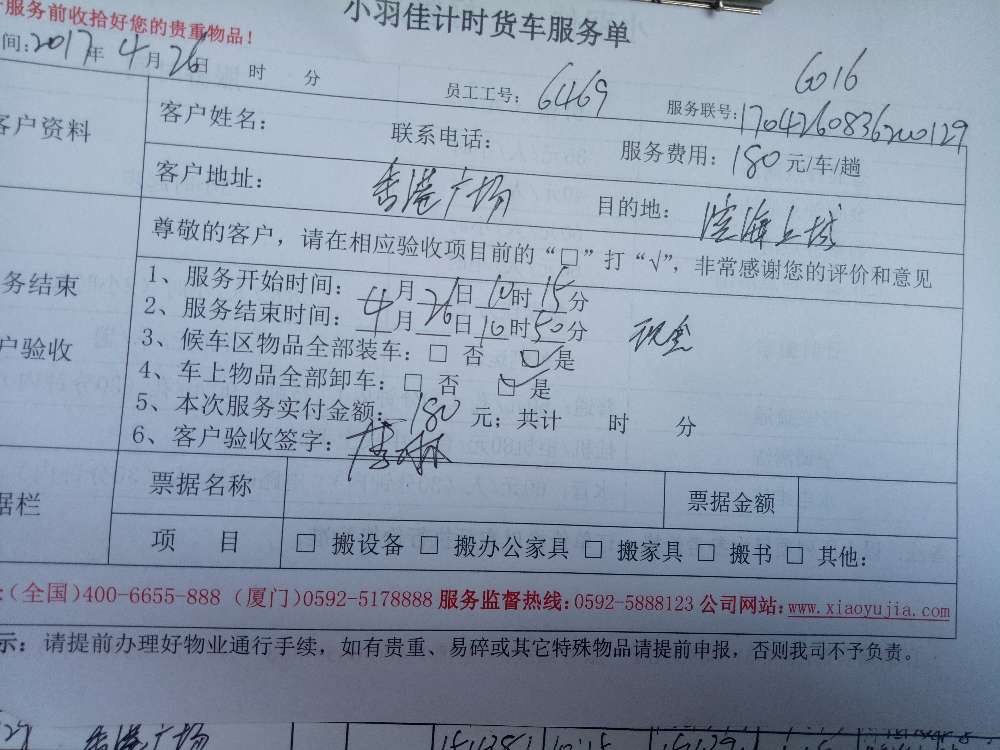 小羽佳计时货车服务单
服务前收拾好您的贵重物品！
间：2017年4月26日 时 分
员工工号：6469
6016
服务联号：1704260836200129
客户资料
客户姓名： 联系电话： 服务费用：180元/车/趟
客户地址：香港广场 目的地：滨海上城
尊敬的客户，请在相应验收项目前的“□”打“√”，非常感谢您的评价和意见
务结束
户验收
1、服务开始时间：4月26日10时15分
2、服务结束时间：4月26日10时50分
现金
3、候车区物品全部装车：□ 否 ☑是
4、车上物品全部卸车：□ 否 ☑是
5、本次服务实付金额：180元；共计 时 分
6、客户验收签字：
据栏
票据名称 票据金额
项 目 □ 搬设备 □ 搬办公家具 □ 搬家具 □ 搬书 □ 其他：
：（全国）400-6655-888（厦门）0592-5178888 服务监督热线：0592-5888123 公司网站：www.xiaoyujia.com
示：请提前办理好物业通行手续，如有贵重、易碎或其它特殊物品请提前申报，否则我司不予负责。
香港广场